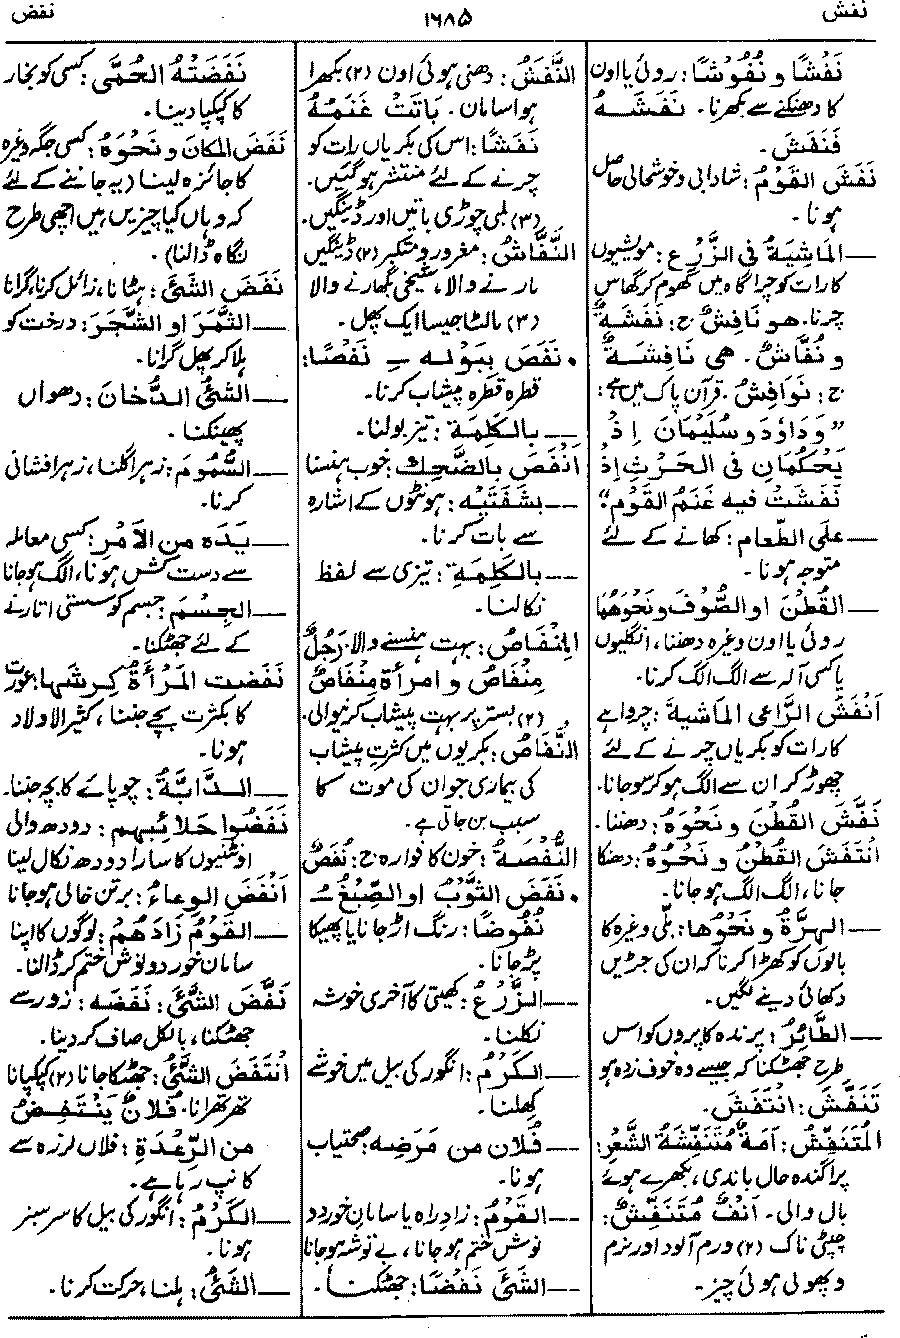 نفش
۱۶۸۵
نفض
نَفْشًا و نُفُوْشًا: روئی یا اون
کا دھنکنے سے بکھرنا۔ نَفَشَــهُ
فَنَفَشَ۔
نَفَشَ القَوْمُ: شادابی و خوشحالی حاصل
ہونا۔
ــ المَاشِيَةُ فی الزَّرْعِ: مویشیوں
کا رات کو چراگاہ میں گھوم کر گھاس
چرنا۔ هو نَافِشٌ ج: نَفَشَةٌ
و نُفَّاشٌ۔ هی نَافِشَــةٌ
ج: نَوَافِشُ۔ قرآن پاک میں ہے:
”وَدَاوُدَ و سُلَيْمَانَ إِذْ
يَحْكُمَانِ فى الحَرْثِ إِذْ
نَفَشَتْ فيه غَنَمُ القَوْمِ“
ــ عَلَى الطَّعامِ: کھانے کے لئے
متوجہ ہونا۔
ــ القُطْنَ او الصُّوْفَ و نَحْوَهُمَا
روئی یا اون وغیرہ دھننا، انگلیوں
یا کسی آلہ سے الگ الگ کرنا۔
اَنْفَشَ الرَّاعِی المَاشِيةَ: چرواہے
کا رات کو بکریاں چرنے کے لئے
چھوڑ کر ان سے الگ ہو کر سو جانا۔
نَفَّشَ القُطْنَ و نَحْوَهُ: دھننا۔
انْتَفَشَ القُطْنُ و نَحْوُهُ: دھنکا
جانا، الگ الگ ہو جانا۔
ــ الهِرَّةُ و نَحْوُها: بلّی وغیرہ کا
بالوں کو کھڑا کرنا کہ ان کی جڑیں
دکھائی دینے لگیں۔
ــ الطَّائِرُ: پرندہ کا پروں کو اس
طرح جھٹکنا کہ جیسے وہ خوف زدہ ہو
تَنَفَّشَ: انْتَفَشَ۔
المُتَنَفِّشُ: اَمَةٌ مُتَنَفِّشَةُ الشَّعْرِ:
پراگندہ حال باندی، بکھرے ہوئے
بال والی۔ اَنْفٌ مُتَنَفِّشٌ:
چپٹی ناک (۲) ورم آلود اور نرم
و پھولی ہوئی چیز۔
النَّفَشُ: دھنی ہوئی اون (۲) بکھرا
ہوا سامان۔ بَاتَتْ غَنَمُهُ
نَفَشًا: اس کی بکریاں رات کو
چرنے کے لئے منتشر ہو گئیں۔
(۳) لمبی چوڑی باتیں اور ڈینگیں۔
النَّفَّاشُ: مغرور و متکبر (۲) ڈینگیں
مارنے والا، شیخی بگھارنے والا
(۳) مالٹا جیسا ایک پھل۔
• نَفَصَ بِبَوْلِه ــِ نَفْصًا:
قطرہ قطرہ پیشاب کرنا۔
ــ بالكَلِمَةِ: تیز بولنا۔
اَنْفَصَ بالضَّحِكِ: خوب ہنسنا
ــ بِشَفَتَيْهِ: ہونٹوں کے اشارہ
سے بات کرنا۔
ــ بالكَلِمَةِ: تیزی سے لفظ
نکالنا۔
المِنْفَاصُ: بہت ہنسنے والا۔ رَجُلٌ
مِنْفَاصٌ و امرأةٌ مِنْفَاصٌ
(۲) بستر پر بہت پیشاب کرنیوالی۔
النُّفَاصُ: بکریوں میں کثرتِ پیشاب
کی بیماری جو ان کی موت کا
سبب بن جاتی ہے۔
النُّفْصَةُ: خون کا فوارہ ج: نُفَصٌ
• نَفَضَ الثَّوْبُ او الصِّبْغُ ــُ
نُفُوْضًا: رنگ اڑ جانا یا پھیکا
پڑ جانا۔
ــ الزَّرْعُ: کھیتی کا آخری خوشہ
نکلنا۔
ــ الكَرْمُ: انگور کی بیل میں خوشے
کھلنا۔
ــ فُلَان من مَرَضِه: صحتیاب
ہونا۔
ــ القَوْمُ: زادِ راہ یا سامانِ خورد و
نوش ختم ہو جانا، بے توشہ ہو جانا
ــ الشَّئَ نَفْضًا: جھٹکنا۔
نَفَضَتْهُ الحُمَّى: کسی کو بخار
کا کپکپا دینا۔
نَفَضَ المكانَ و نَحْوَهُ: کسی جگہ وغیرہ
کا جائزہ لینا (یہ جاننے کے لئے
کہ وہاں کیا چیزیں ہیں اچھی طرح
نگاہ ڈالنا)۔
نَفَضَ الشَّئَ: ہٹانا، زائل کرنا، گرانا
ــ الثَّمَرَ او الشَّجَرَ: درخت کو
ہلا کر پھل گرانا۔
ــ الشئُ الدُّخانَ: دھواں
پھینکنا۔
ــ السُّمُومَ: زہر اگلنا، زہر افشانی
کرنا۔
ــ يَدَه من الاَمْرِ: کسی معاملہ
سے دست کش ہونا، الگ ہو جانا
ــ الجِسْمَ: جسم کو سستی اتارنے
کے لئے جھٹکنا۔
نَفَضَت المَرْأَةُ كَرِشَها: عورت
کا بکثرت بچے جننا، کثیر الاولاد
ہونا۔
ــ الدَّابَّةُ: چوپائے کا بچہ جننا۔
نَفَضُوا حَلَائِبَهم: دودھ والی
اونٹنیوں کا سارا دودھ نکال لینا
اَنْفَضَ الوِعاءُ: برتن خالی ہو جانا
ــ القَوْمُ زَادَهُمْ: لوگوں کا اپنا
سامان خورد و نوش ختم کر ڈالنا۔
نَفَّضَ الشَّئَ: نَفَضَه: زور سے
جھٹکنا، بالکل صاف کر دینا۔
انْتَفَضَ الشَّئُ: جھٹکا جانا (۲) کپکپانا
تھرتھرانا۔ فُلَانٌ يَنْتَفِضُ
من الرِّعْدَةِ: فلاں لرزہ سے
کانپ رہا ہے۔
ــ الكَرْمُ: انگور کی بیل کا سرسبز
ہونا۔
ــ الشَّئُ: ہلنا، حرکت کرنا۔